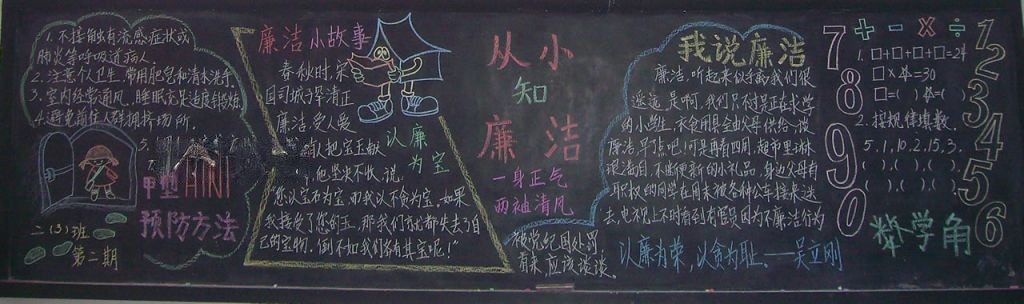 1. 不接触有流感症状或
肺炎等呼吸道病人.
2. 注意个人卫生,常用肥皂和清水洗手.
3. 室内经常通风,睡眠充足适度锻炼.
4. 避免前往人群拥挤场所.
5.
7.
甲型 H1N1
预防方法
二(3)班
第二期
廉洁小故事
春秋时,宋
国司城子罕清正
廉洁,受人爱
有人把宝玉献
他坚决不收,说:
“您以宝石为宝,而我以不贪为宝.如果
我接受了您的玉,那我们就都失去了自
己的宝物.倒不如我们各有其宝呢!”
以廉
为宝
从小
知
廉洁
一身正气
两袖清风
我说廉洁
廉洁,听起来似乎离我们很
遥远,是啊,我们只不过是正在求学
的小学生,衣食用具全由父母供给,谈
廉洁早了点吧!可是再看四周,超市里琳
误落目,不停更新的小礼品,身边父母有
职权的同学在周末被各种公车接来送
去,也不也上不时有到有官员因为不廉洁行为
被党纪国处罚
有来应该谈谈.
以廉为荣,以贪为耻.——吴立刚
7 8 9 0
+ - × ÷
1. □+□+□+□=24
□×☆=30
□=( ) ☆=( )
2. 找规律填数.
5.1,10.2,15.3,
( ),( ),( ),
( ),( ),( ).
数学角
1 2 3 4 5 6